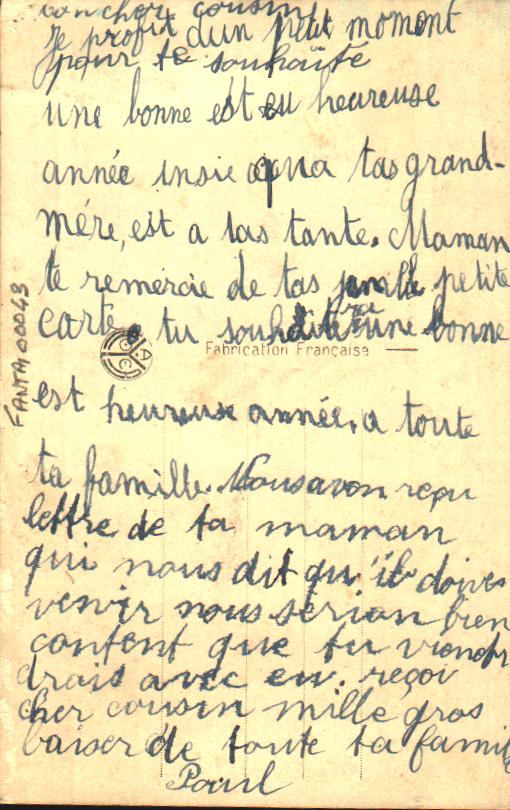 mon cher cousin
je profit d'un petit moment
pour te souhaite
une bonne est eu heureuse
année insie qua tas grand-
mére, est a tas tante. Maman
te remercie de tas petite
carte tu souhaitera une bonne
Fabrication Française
est heureuse année, a toute
ta famille. Nous avon reçu
lettre de ta maman
qui nous dit qu'il doives
venir nous serion bien
content que tu viend
drais avec eu. reçoi
cher cousin mille gros
baiser de toute ta famil
Paul
FANTAI 00043